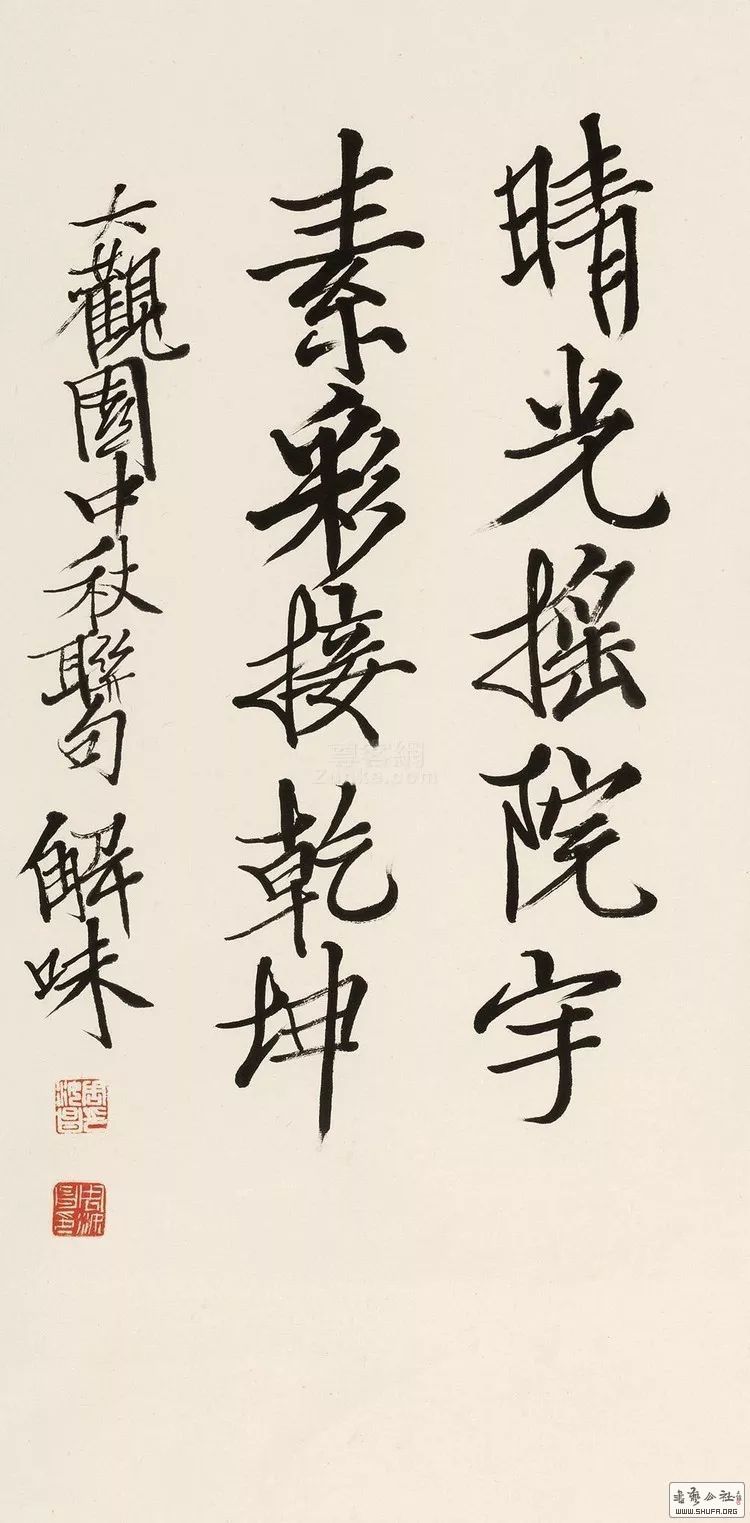 晴光搖院宇
素彩接乾坤
大觀園中秋聯句 解味
尊客網
Zunke.com
WWW.SHUFA.ORG